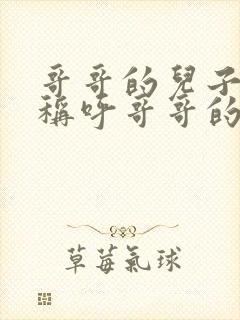 哥哥的兒子
稱呼哥哥的
草莓氣球